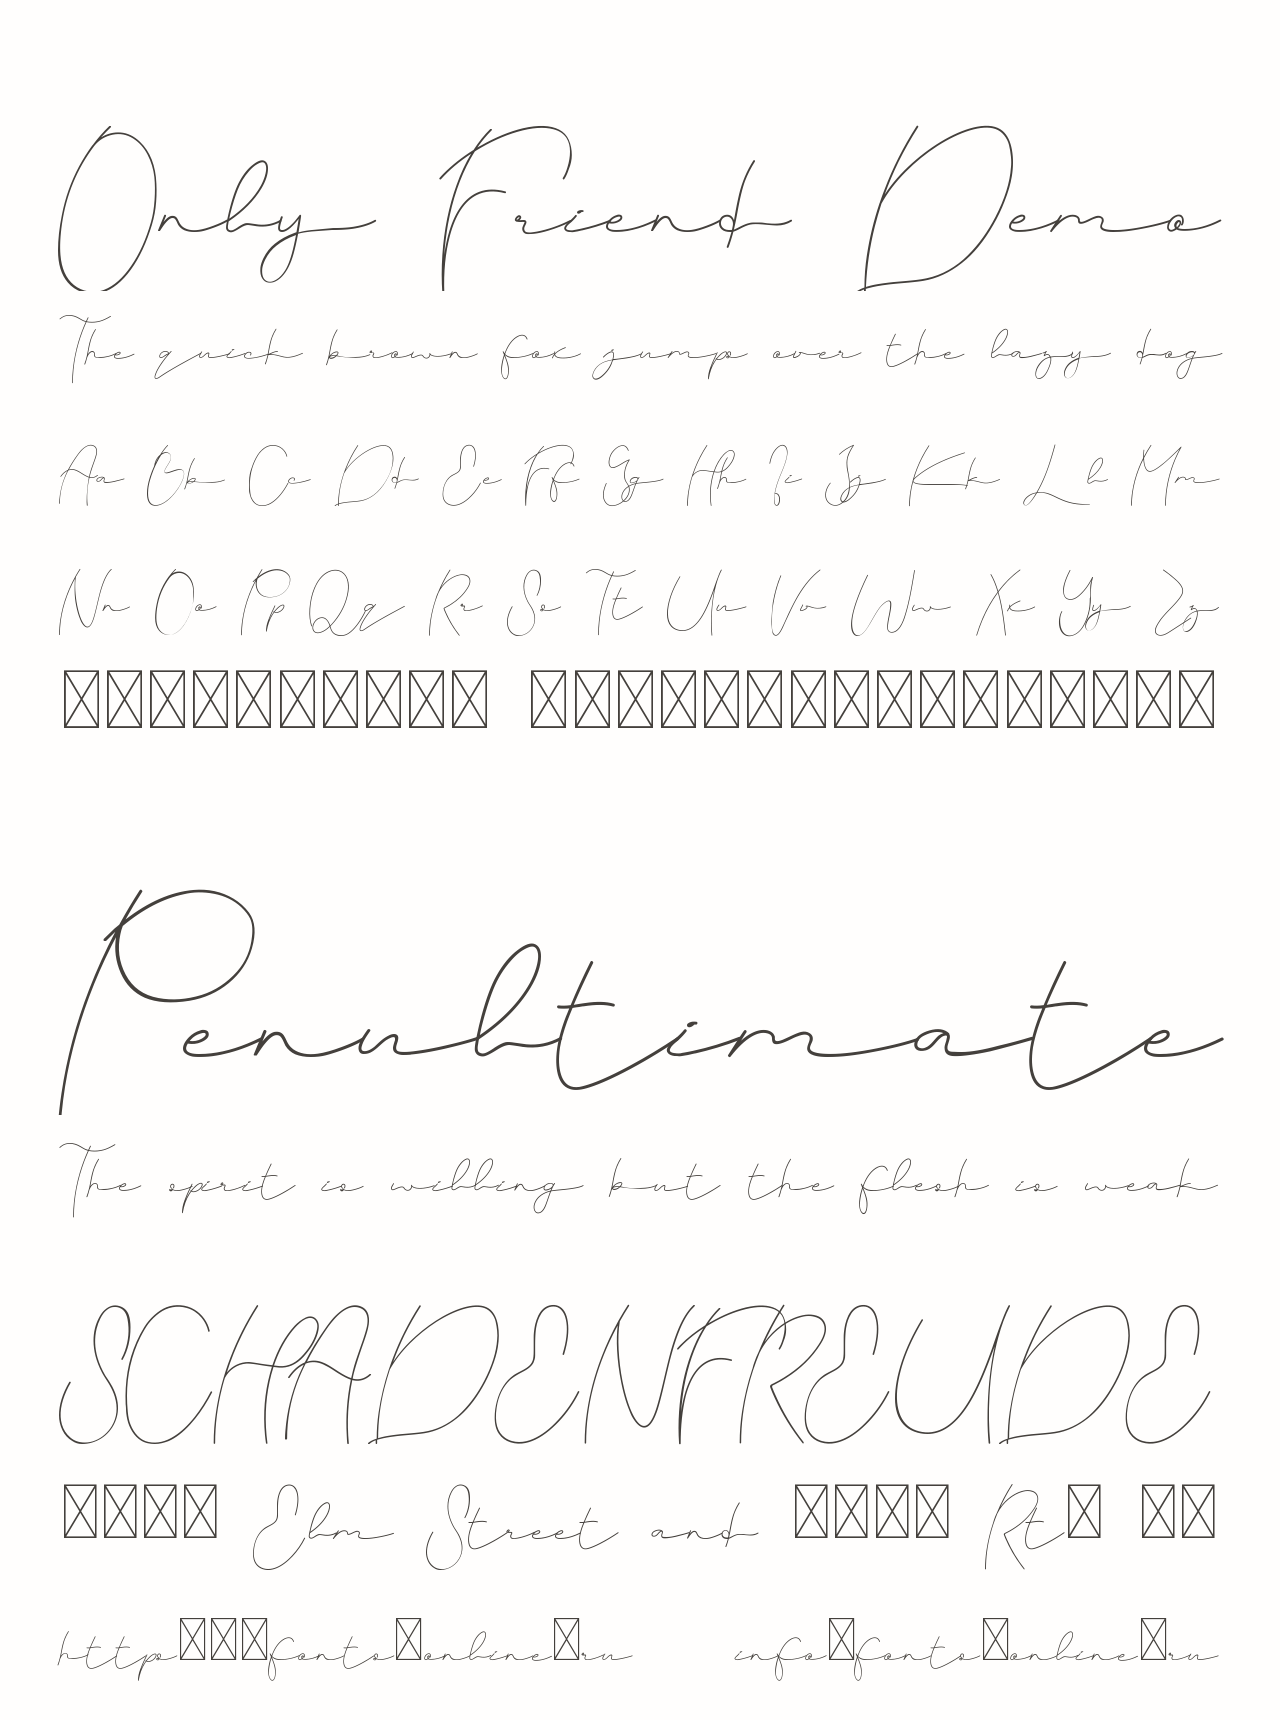 Only Friend Demo
The quick brown fox jump over the lazy dog
Aa Bb Cc Dd Ee Ff Gg Hh Ii Jj Kk Ll Mm
Nn Oo Pp Qq Rr Ss Tt Uu Vv Ww Xx Yy Zz
Penultimate
The spirit is willing but the flesh is weak
SCHADENFREUDE
Elm Street and Rt
http fonts online ru info fonts online ru